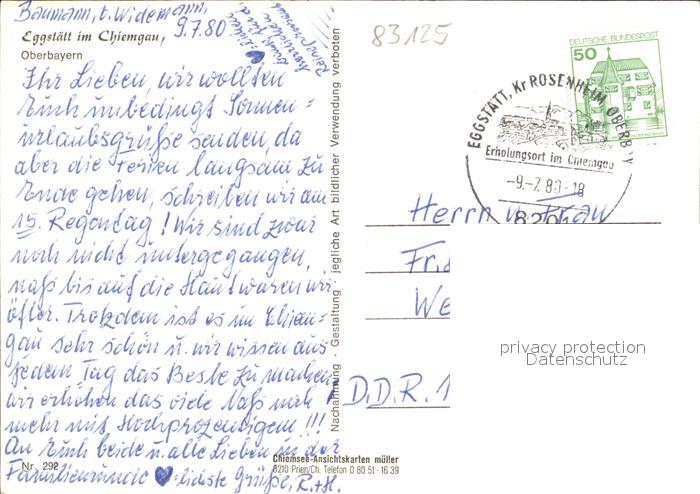 Baumann, b. Widemann,
9.7.80
Eggstätt im Chiemgau,
Oberbayern
Ihr Lieben, wir wollten
Euch unbedingt Sonnen=
urlaubsgrüße senden, da
aber die Ferien langsam zu
Ende gehen, schreiben wir am
15. Regentag! Wir sind zwar
noch nicht untergegangen,
naß bis auf die Haut waren wir
öfter. Trotzdem ist es im Chiem=
gau sehr schön u. wir wissen aus
jedem Tag das Beste zu machen,
wir erhöhen das viele Naß noch
mehr mit Hochprozentigem !!!
An Euch beide u. alle Lieben in der
Familienrunde ♥-lichste Grüße, R.+H.
Nr. 292
Chiemsee-Ansichtskarten müller
8210 Prien/Ch. Telefon 0 80 51 - 16 39
Nachahmung · Gestaltung · jegliche Art bildlicher Verwendung verboten
83125
DEUTSCHE BUNDESPOST
50
EGGSTÄTT, Kr ROSENHEIM, OBERBAY
Erholungsort im Chiemgau
-9.-7.80-18
8201
Herrn u. Frau
Fri
We
D.D.R. 1
privacy protection
Datenschutz